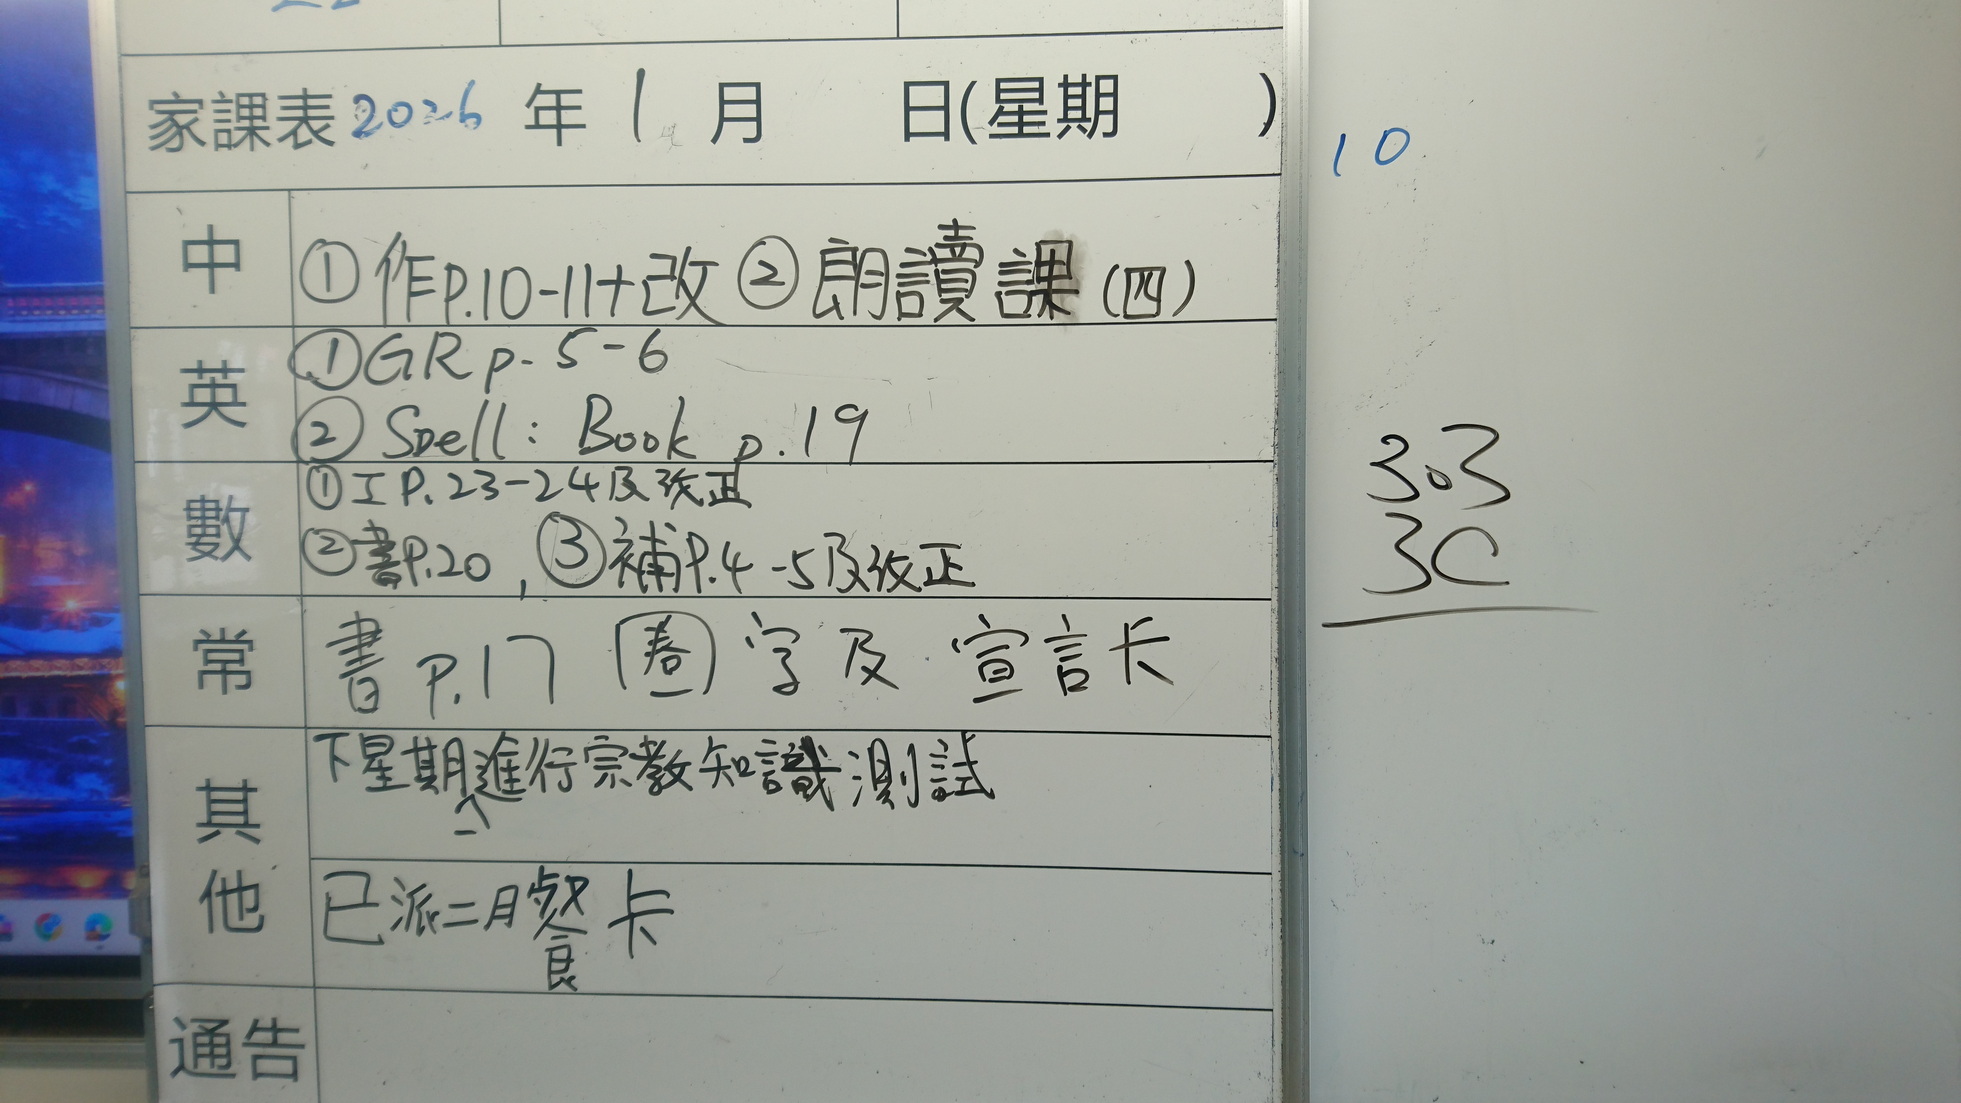 家課表2026年1月 日(星期 )
10
中 ①作P.10-11+改 ②朗讀課(四)
英 ①GR p. 5-6
② Spell: Book p.19
數 ①工P.23-24及改正
②書P.20, ③補P.4-5及改正
303
3C
常 書 P.17 圈字及宣言卡
其他 下星期一進行宗教知識測試
已派二月餐卡
通告